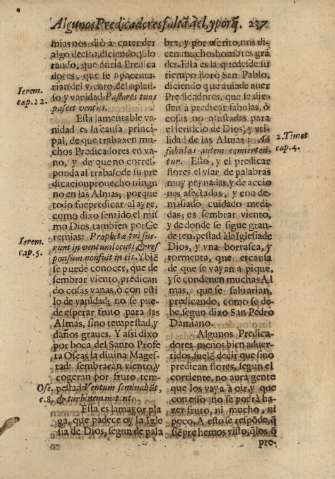 Algunos Predicadores faledaèl, y porq̃. 237
mias nos diò à entender
algo desto, diciendo, y llo-
rando, que auria Predica-
dores, que se apacenta-
rian del viento, del aplau-
so, y vanidad: Pastores tuos
pascet ventus.
Ierem.
cap. 22.
Esta lamentable va-
nidad es la causa princi-
pal, de que trabaxen mu-
chos Predicadores en va-
no, y de que no corres-
ponda al trabajo de su pre-
dicacion prouecho ningu-
no en las Almas, porque
todo fue predicar al ayre,
como dixo sentido el mis-
mo Dios tambien por Ge-
remias: Prophetæ tui fue-
runt in ventum locuti, & res-
ponsum non fuit in eis. Y biē
se puede conocer, que de
sembrar viento, predican-
do cosas vanas, ò con esti-
lo de vanidad; no se pue-
de esperar fruto para las
Almas, sino tempestad, y
daños graues. Y assi dixo
por boca del Santo Profe-
ta Oseas la diuina Mages-
tad: sembraràn viento, y
cogeràn por fruto tem-
pestad: Ventum seminabũt,
& turbinem metent.
Ierem.
cap. 5.
Ose.
c. 8.
Esta es la mayor pla-
ga, que padece oy la Igle-
sia de Dios, segun de pala-
bra, y por escrito, nos di-
cen muchos hombres gra-
des. Esta es la que desde su
tiempo llorò San Pablo,
diciendo que auia de auer
Predicadores, que se dies-
sen à predicar fabulas, ò
cosas no ajustadas para
el seruicio de Dios, y vti-
lidad de las Almas: Ad fa-
bulas autem conuer-
tentur. Esto, y el predicar
flores, el vsar de palabras
muy peynadas, y de accio-
nes afectadas, y con de-
masiado cuidado medi-
das, es sembrar viento, y
de donde se sigue gran-
de tempestad à la Iglesia de
Dios, y vna borrasca, y
tormenta, que es causa
de que se vayan à pique,
y se condenen muchas Al-
mas, que se saluarian,
predicando, como se de-
be, segun dixo San Pedro
Damiano.
2. Timot.
cap. 4.
Algunos Predica-
dores, menos bien aduer-
tidos, suele decir que si no
predican flores, segun el
corriente, no aurà gente
que los vaya à oir, y que
con esso no se podrà ha-
zer fruto, ni mucho, ni
poco. A esto se respõde, q̃
siẽpre hemos visto, q̃ los q̃
pre-